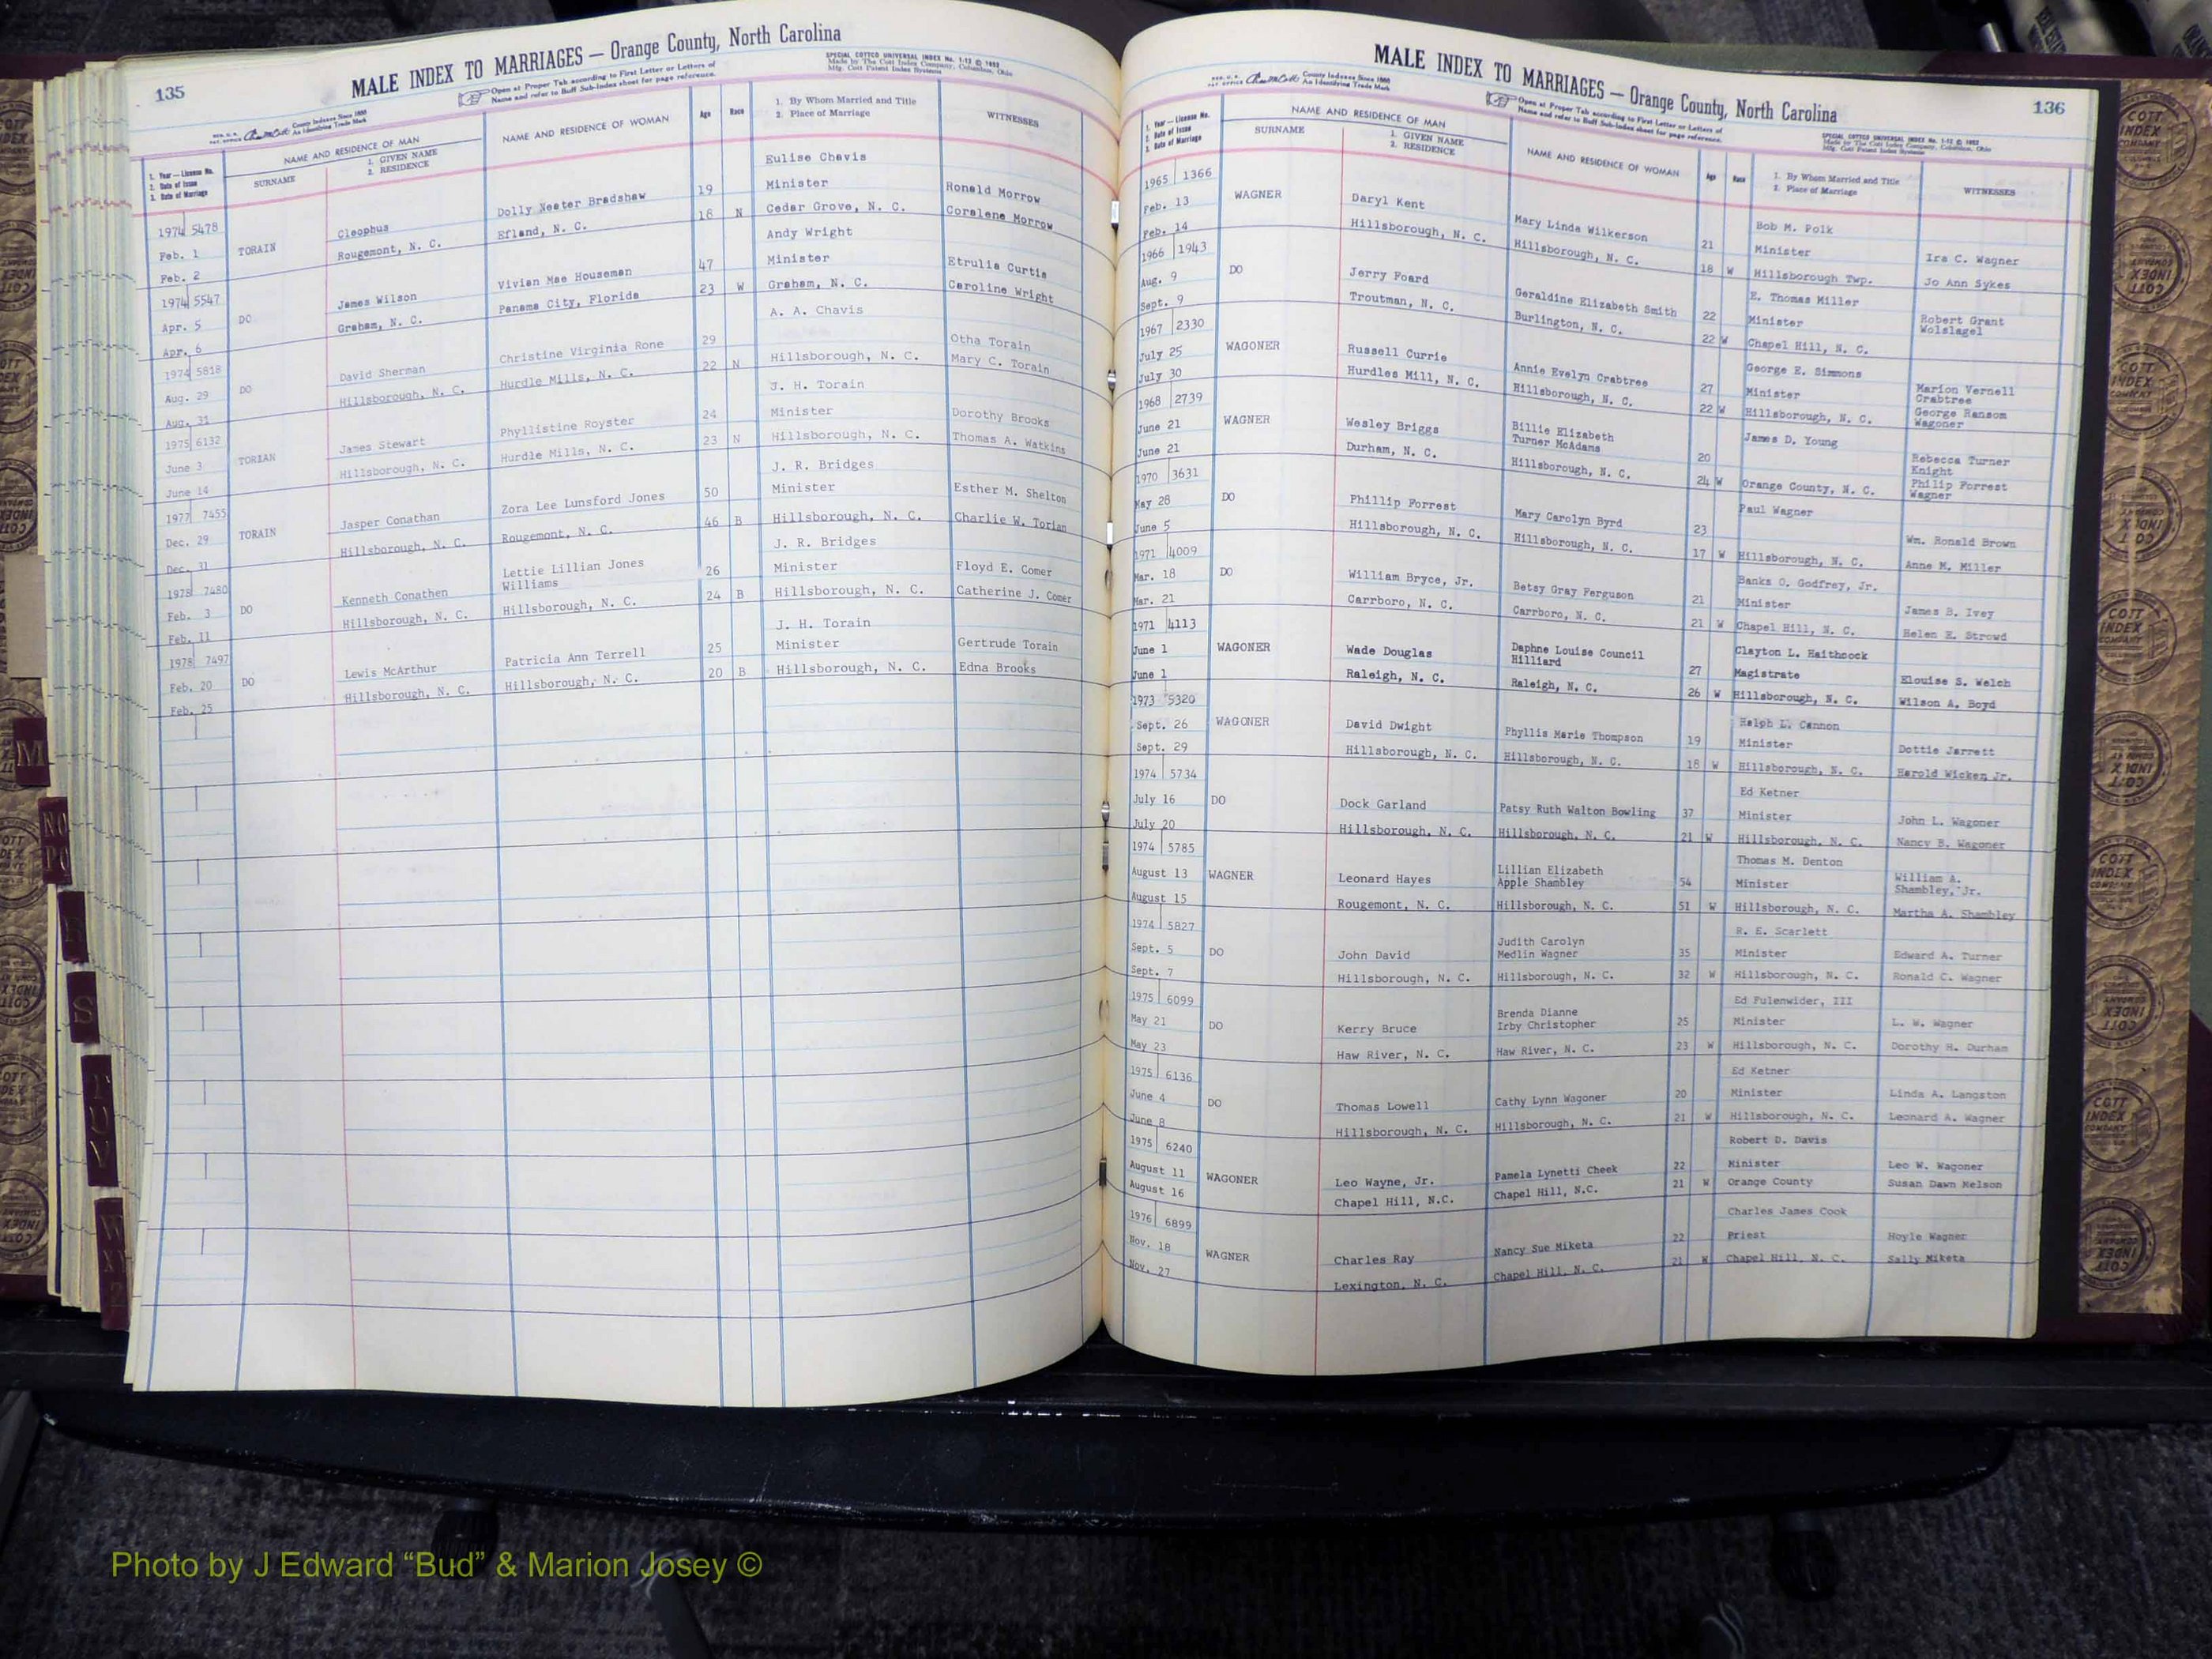 135
MALE INDEX TO MARRIAGES — Orange County, North Carolina
Open at Proper Tab according to First Letter or Letters of
Name and refer to Buff Sub-Index sheet for page reference.
SPECIAL COTTCO UNIVERSAL INDEX No. 1-12 © 1952
Made by The Cott Index Company, Columbus, Ohio
Mfg. Cott Patent Index Systems
County Indexes Since 1888
An Identifying Trade Mark
1. Year — License No.
2. Date of Issue
3. Date of Marriage
NAME AND RESIDENCE OF MAN
SURNAME
1. GIVEN NAME
2. RESIDENCE
NAME AND RESIDENCE OF WOMAN
Age
Race
1. By Whom Married and Title
2. Place of Marriage
WITNESSES
1974 5478 Eulise Chavis
Feb. 1 TORAIN Cleophus Dolly Neeter Bradshaw 19 Minister Ronald Morrow
Feb. 2 Rougemont, N. C. Efland, N. C. 18 N Cedar Grove, N. C. Coralene Morrow
1974 5547 Andy Wright
Apr. 5 DO James Wilson Vivian Mae Houseman 47 Minister Etrulia Curtis
Apr. 6 Graham, N. C. Panama City, Florida 23 W Graham, N. C. Caroline Wright
1974 5818 A. A. Chavis
Aug. 29 DO David Sherman Christine Virginia Rone 29 Otha Torain
Aug. 31 Hillsborough, N. C. Hurdle Mills, N. C. 22 N Hillsborough, N. C. Mary C. Torain
1975 6132 J. H. Torain
June 3 TORIAN James Stewart Phyllistine Royster 24 Minister Dorothy Brooks
June 14 Hillsborough, N. C. Hurdle Mills, N. C. 23 N Hillsborough, N. C. Thomas A. Watkins
1977 7455 J. R. Bridges
Dec. 29 TORAIN Jasper Conathan Zora Lee Lunsford Jones 50 Minister Esther M. Shelton
Dec. 31 Hillsborough, N. C. Rougemont, N. C. 46 B Hillsborough, N. C. Charlie W. Torian
1978 7480 J. R. Bridges
Feb. 3 DO Kenneth Conathen Lettie Lillian Jones Williams 26 Minister Floyd E. Comer
Feb. 11 Hillsborough, N. C. Hillsborough, N. C. 24 B Hillsborough, N. C. Catherine J. Comer
1978 7497 J. H. Torain
Feb. 20 DO Lewis McArthur Patricia Ann Terrell 25 Minister Gertrude Torain
Feb. 25 Hillsborough, N. C. Hillsborough, N. C. 20 B Hillsborough, N. C. Edna Brooks
136
MALE INDEX TO MARRIAGES — Orange County, North Carolina
County Indexes Since 1888
An Identifying Trade Mark
Open at Proper Tab according to First Letter or Letters of
Name and refer to Buff Sub-Index sheet for page reference.
SPECIAL COTTCO UNIVERSAL INDEX No. 1-12 © 1952
Made by The Cott Index Company, Columbus, Ohio
Mfg. Cott Patent Index Systems
1. Year — License No.
2. Date of Issue
3. Date of Marriage
NAME AND RESIDENCE OF MAN
SURNAME
1. GIVEN NAME
2. RESIDENCE
NAME AND RESIDENCE OF WOMAN
Age
Race
1. By Whom Married and Title
2. Place of Marriage
WITNESSES
1965 1366 Bob M. Polk
Feb. 13 WAGNER Daryl Kent Mary Linda Wilkerson 21 Minister Ira C. Wagner
Feb. 14 Hillsborough, N. C. Hillsborough, N. C. 18 W Hillsborough Twp. Jo Ann Sykes
1966 1943 E. Thomas Miller
Aug. 9 DO Jerry Foard Geraldine Elizabeth Smith 22 Minister Robert Grant Wolslagel
Sept. 9 Troutman, N. C. Burlington, N. C. 22 W Chapel Hill, N. C.
1967 2330 George E. Simmons
July 25 WAGONER Russell Currie Annie Evelyn Crabtree 27 Minister Marion Vernell Crabtree
July 30 Hurdles Mill, N. C. Hillsborough, N. C. 22 W Hillsborough, N. C. George Ransom Wagoner
1968 2739 James D. Young
June 21 WAGNER Wesley Briggs Billie Elizabeth Turner McAdams 20 Rebecca Turner Knight
June 21 Durham, N. C. Hillsborough, N. C. 24 W Orange County, N. C. Philip Forrest Wagner
1970 3631 Paul Wagner
May 28 DO Phillip Forrest Mary Carolyn Byrd 23 Wm. Ronald Brown
June 5 Hillsborough, N. C. Hillsborough, N. C. 17 W Hillsborough, N. C. Anne M. Miller
1971 4009 Banks O. Godfrey, Jr.
Mar. 18 DO William Bryce, Jr. Betsy Gray Ferguson 21 Minister James B. Ivey
Mar. 21 Carrboro, N. C. Carrboro, N. C. 21 W Chapel Hill, N. C. Helen E. Strowd
1971 4113 Clayton L. Haithcock
June 1 WAGONER Wade Douglas Daphne Louise Council Hilliard 27 Magistrate Elouise S. Welch
June 1 Raleigh, N. C. Raleigh, N. C. 26 W Hillsborough, N. C. Wilson A. Boyd
1973 5320 Ralph L. Cannon
Sept. 26 WAGONER David Dwight Phyllis Marie Thompson 19 Minister Dottie Jarrett
Sept. 29 Hillsborough, N. C. Hillsborough, N. C. 18 W Hillsborough, N. C. Harold Wicker Jr.
1974 5734 Ed Ketner
July 16 DO Dock Garland Patsy Ruth Walton Bowling 37 Minister John L. Wagoner
July 20 Hillsborough, N. C. Hillsborough, N. C. 21 W Hillsborough, N. C. Nancy B. Wagoner
1974 5785 Thomas M. Denton
August 13 WAGNER Leonard Hayes Lillian Elizabeth Apple Shambley 54 Minister William A. Shambley, Jr.
August 15 Rougemont, N. C. Hillsborough, N. C. 51 W Hillsborough, N. C. Martha A. Shambley
1974 5827 R. E. Scarlett
Sept. 5 DO John David Judith Carolyn Medlin Wagner 35 Minister Edward A. Turner
Sept. 7 Hillsborough, N. C. Hillsborough, N. C. 32 W Hillsborough, N. C. Ronald C. Wagner
1975 6099 Ed Fulenwider, III
May 21 DO Kerry Bruce Brenda Dianne Irby Christopher 25 Minister L. W. Wagner
May 23 Haw River, N. C. Haw River, N. C. 23 W Hillsborough, N. C. Dorothy H. Durham
1975 6136 Ed Ketner
June 4 DO Thomas Lowell Cathy Lynn Wagoner 20 Minister Linda A. Langston
June 8 Hillsborough, N. C. Hillsborough, N. C. 21 W Hillsborough, N. C. Leonard A. Wagner
1975 6240 Robert D. Davis
August 11 WAGONER Leo Wayne, Jr. Pamela Lynetti Cheek 22 Minister Leo W. Wagoner
August 16 Chapel Hill, N.C. Chapel Hill, N.C. 21 W Orange County Susan Dawn Nelson
1976 6899 Charles James Cook
Nov. 18 WAGNER Charles Ray Nancy Sue Miketa 22 Priest Hoyle Wagner
Nov. 27 Lexington, N. C. Chapel Hill, N. C. 21 W Chapel Hill, N. C. Sally Miketa
M
R
S
T
U
V
W
Photo by J Edward “Bud” & Marion Josey ©